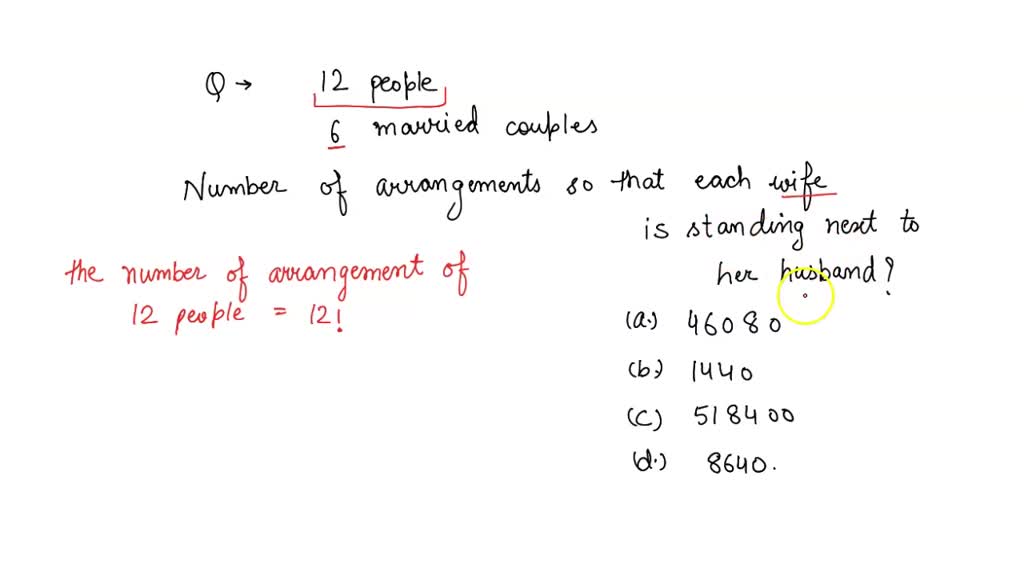 Q → 12 people
6 married couples
Number of arrangements so that each wife
is standing next to
her husband?
the number of arrangement of
12 people = 12!
(a.) 46080
(b.) 1440
(c) 518400
(d.) 8640.